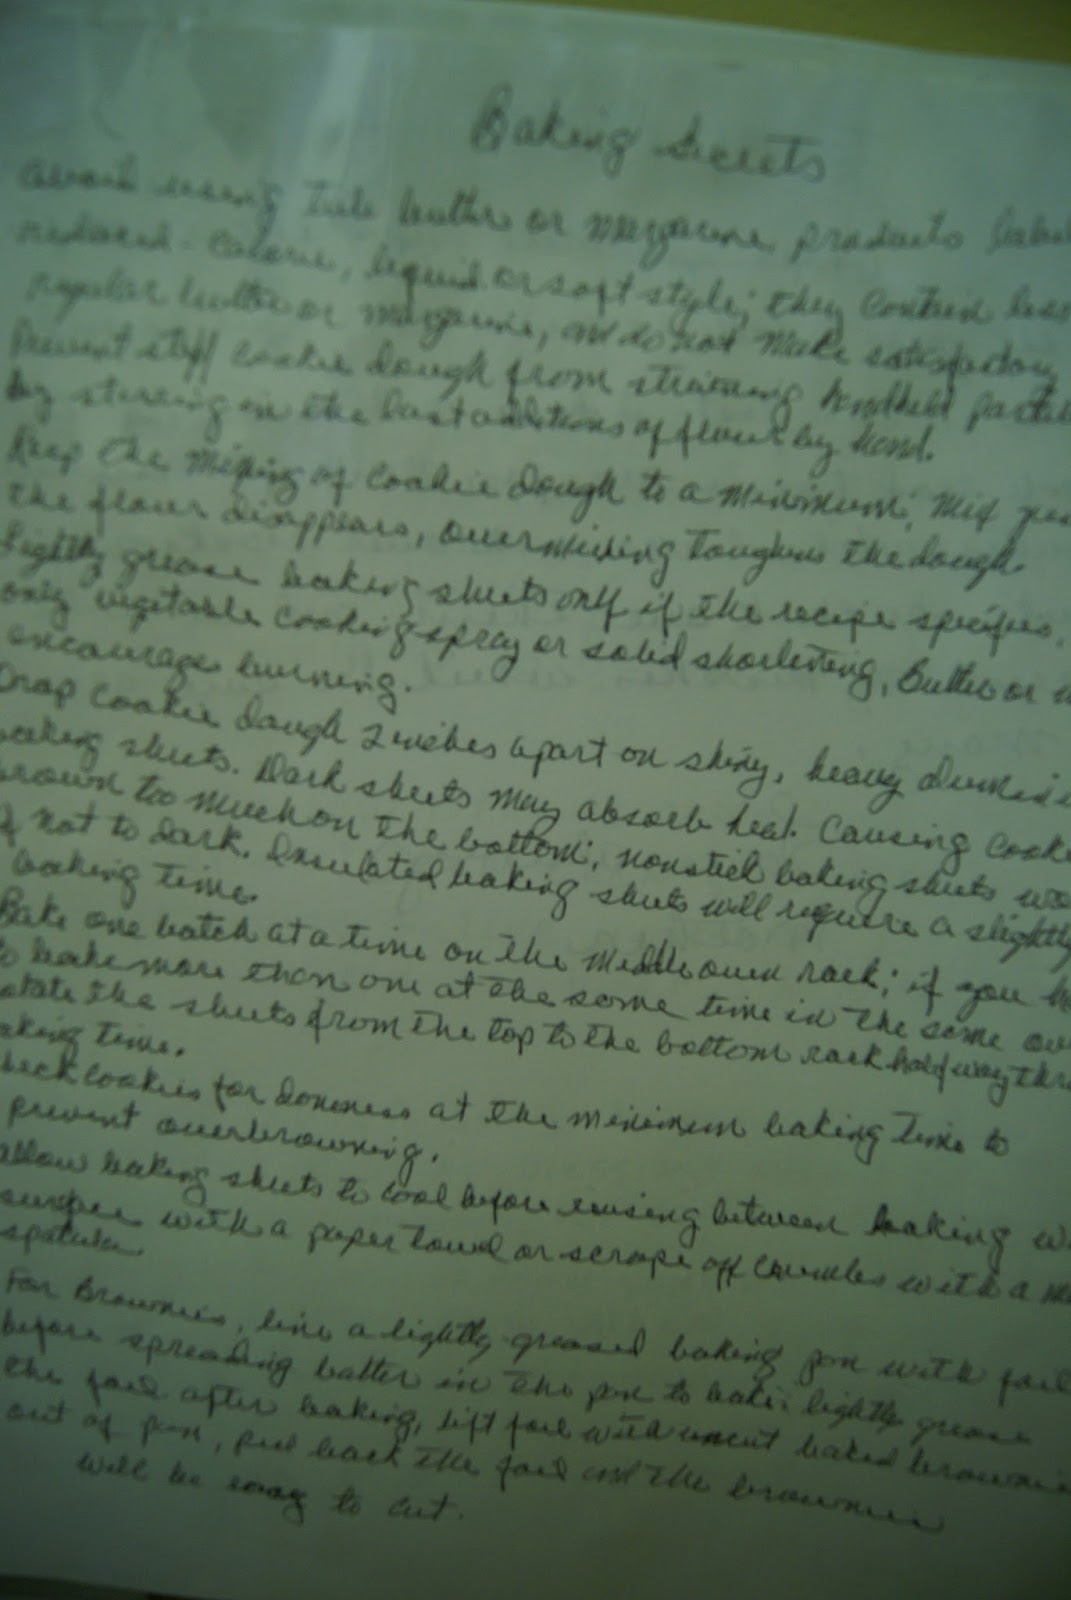 Baking Secrets
Avoid using tub butter or margarine products
reduced-calorie, liquid or soft style; they contain less
regular butter or margarine, and do not make satisfactory
Prevent stiff cookie dough from straining handheld
by stirring in the last additions of flour by hand.
Keep the mixing of cookie dough to a minimum; mix
the flour disappears, overmixing toughens the dough.
Lightly grease baking sheets only if the recipe specifies.
only vegetable cooking spray or solid shortening, Butter or
encourages burning.
Drop cookie dough 2 inches apart on shiny, heavy
baking sheets. Dark sheets may absorb heat. Causing
brown too much on the bottom; nonstick baking sheets
if not to dark. Insulated baking sheets will require a slightly
baking time.
Bake one batch at a time on the middle oven rack; if you
to bake more than one at the same time in the same
rotate the sheets from the top to the bottom rack halfway
baking time.
Check cookies for doneness at the minimum baking time to
prevent overbrowning.
Allow baking sheets to cool before reusing between baking
surface with a paper towel or scrape off crumbs with a
spatula.
For Brownies, line a lightly greased baking pan with foil
before spreading batter in the pan to bake; lightly grease
the foil after baking, lift foil with uncut baked
out of pan, peel back the foil and the brownies
will be easy to cut.